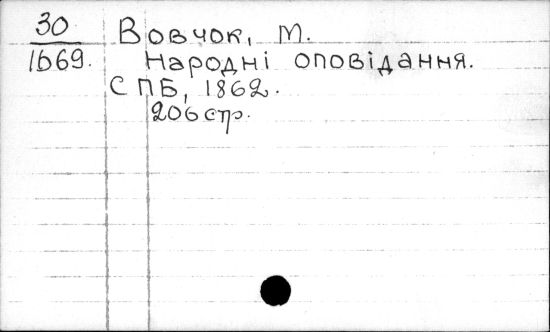 30
1669.
Вовчок, М.
Народні оповідання.
СПБ, 1862.
206 стр.